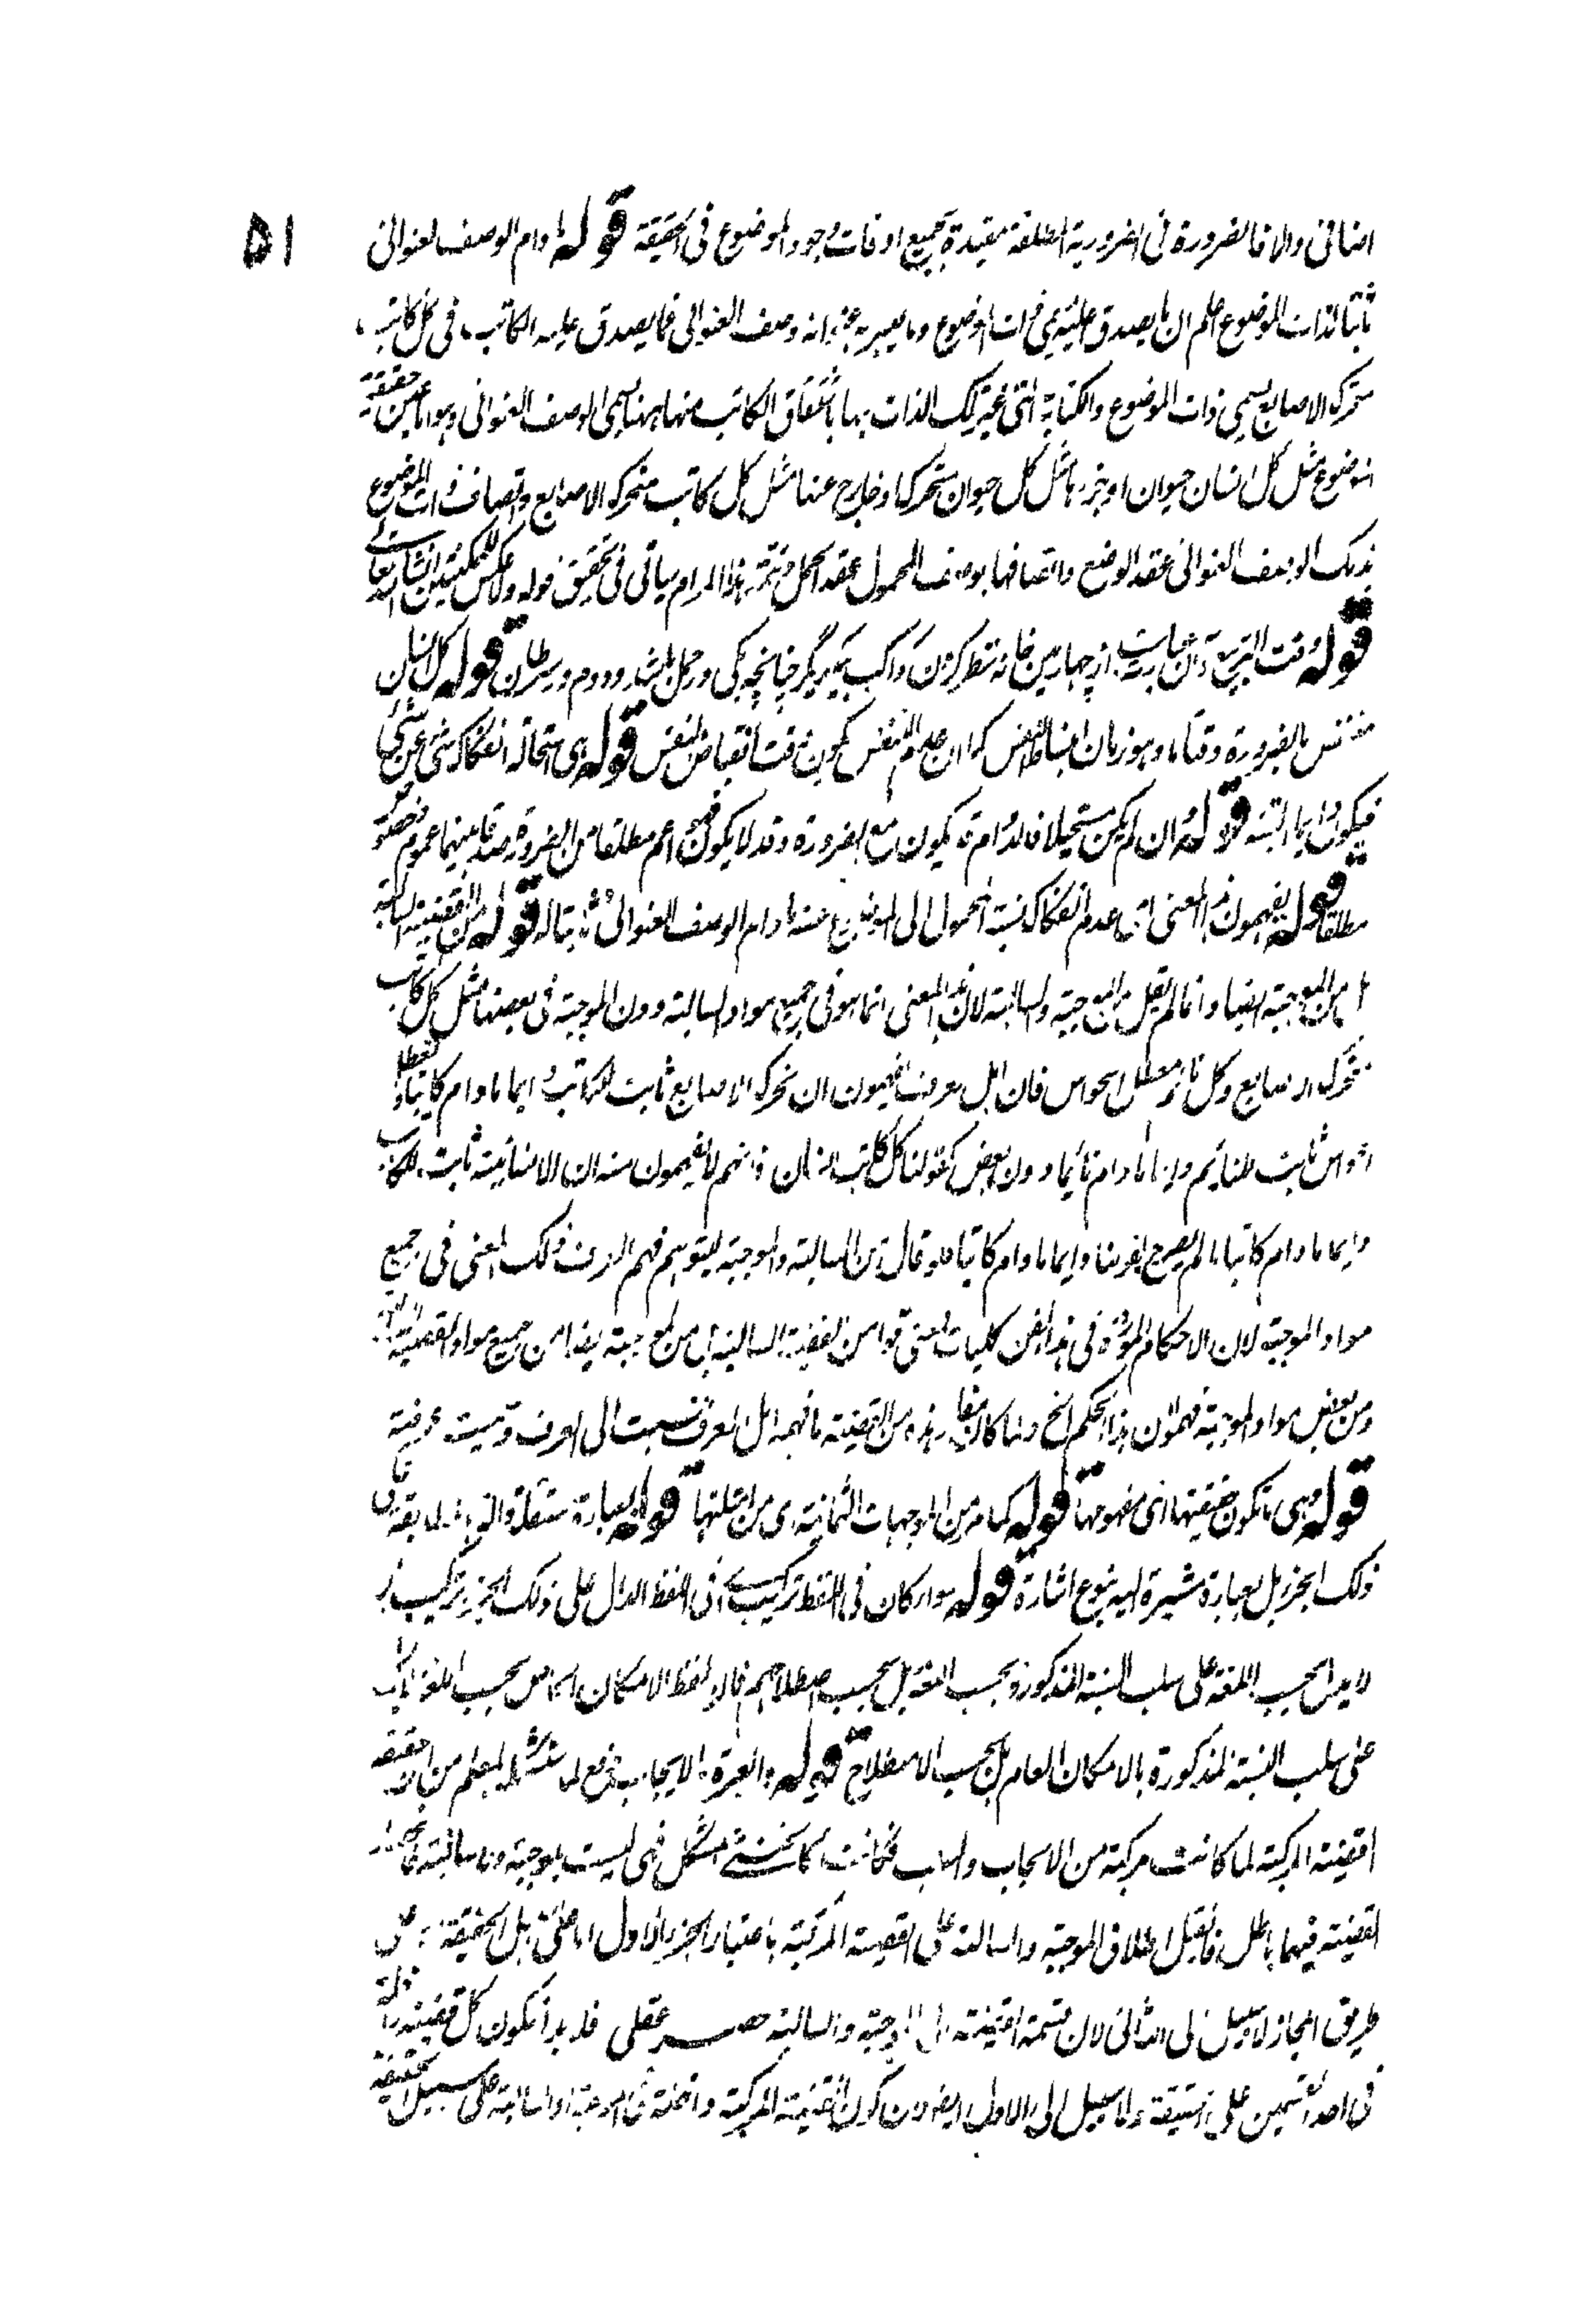 ۵۱
اضافى والا فالضرورة فى الضرورية المطلقة مقيدة بجميع اوقات وجود الموضوع فى الحقيقة قوله ما دام الوصف العنوانى
ثابتا لذات الموضوع اعلم ان ما يصدق عليه يسمى ذات الموضوع وما يعبر به عنه انه وصف العنوانى فما يصدق عليه الكاتب فى كل كاتب
متحرك الاصابع يسمى ذات الموضوع والكتابة التى عبر تلك الذات بها باشتقاق الكاتب منها ههنا يسمى الوصف العنوانى وهو اما عين حقيقة
الموضوع مثل كل انسان حيوان او جزءها مثل كل حيوان متحرك او خارج عنها مثل كل كاتب متحرك الاصابع واتصاف ذات الموضوع
بذلك الوصف العنوانى عقد الوضع واتصافها بوصف المحمول عقد الحمل وتتمة هذا المرام سياتى فى تحقيق قوله ولا عكس للممكنتين انشاء الله تعالى
قوله وقت التربيع از چهارمين خانه نظر كردن كواكب بيكديگر چنانچه يكى در حمل باشد ودوم در سرطان قوله كل انسان
متنفس بالضرورة وقتا ما وهو زمان انبساط النفس كما ان عدم التنفس يكون وقت انقباض النفس قوله اى استحالة انفكاك شئ عن شئ
فيكون دايما البتة قوله ان لم يكن مستحيلا فالدوام قد يكون مع الضرورة وقد لا يكون فهو اعم مطلقا من الضرورة فبينهما عموم وخصوص
مطلقا قوله يفهمون هذا المعنى اى عدم انفكاك نسبة المحمول الى الموضوع عنه ما دام الوصف العنوانى ثابتا له قوله من القضية السالبة
بل من الموجبة ايضا وانما لم يقل من الموجبة والسالبة لان هذا المعنى انما هو فى جميع مواد السالبة ودون الموجبة فى بعضها مثل كل كاتب
متحرك الاصابع وكل نائم معطل الحواس فان اهل العرف يفهمون ان تحرك الاصابع ثابت للكاتب دايما ما دام كاتبا وتعطل
الحواس ثابت للنايم دايما ما دام نائما دون بعض كقولنا كل كاتب انسان فانهم لا يفهمون منه ان الانسانية ثابت للكاتب
دايما ما دام كاتبا ما لم يصرح بقولنا دايما ما دام كاتبا فلو قال من السالبة والموجبة ليتوهم فهم العرف ذلك المعنى فى جميع
مواد الموجبة لان الاحكام الموردة فى هذا الفن كليات فمعنى قوله من القضية السالبة بل من الموجبة ايضا من جميع مواد القضية السالبة
ومن بعض مواد الموجبة فهموا ان هذا الحكم الخ ولما كان مفاد هذه من القضية ما فهمه اهل العرف نسبت الى العرف وسميت عرفية
قوله وهى ما تكون حقيقتها اى مفهومها قوله كما مر من الموجهات الثمانية اى من امثلتها قوله بعبارة مستقلة
ذلك الجزء بل بعبارة مشيرة اليه بنوع اشارة قوله سواء كان فى اللفظ تركيب اى فى اللفظ الدال على ذلك الجزء تركيب
لا يدل بحسب اللغة على سلب النسبة المذكورة بحسب اللغة بل بحسب اصطلاحهم فان لفظ الامكان الخاص بحسب اللغة
على سلب النسبة المذكورة بالامكان العام بل بحسب الاصطلاح قوله والعبرة بالايجاب دفع لما المعلم من ان حقيقة
القضية المركبة لما كانت مركبة من الايجاب والسلب فكانت كالخنثى المشكل فهى ليست بموجبة ولا سالبة فانحصار
القضية فيهما باطل فان قيل اطلاق الموجبة والسالبة على القضية المركبة باعتبار الجزء الاول اما على سبيل الحقيقة او على
طريق المجاز لا سبيل الى الثانى لان قسمة القضية الى الموجبة والسالبة حصر عقلى فلا بد ان يكون كل قضية داخلة
فى احد القسمين على الحقيقة ولا سبيل الى الاول ايضا لان كون القضية المركبة داخلة فى الموجبة او السالبة على سبيل الحقيقة